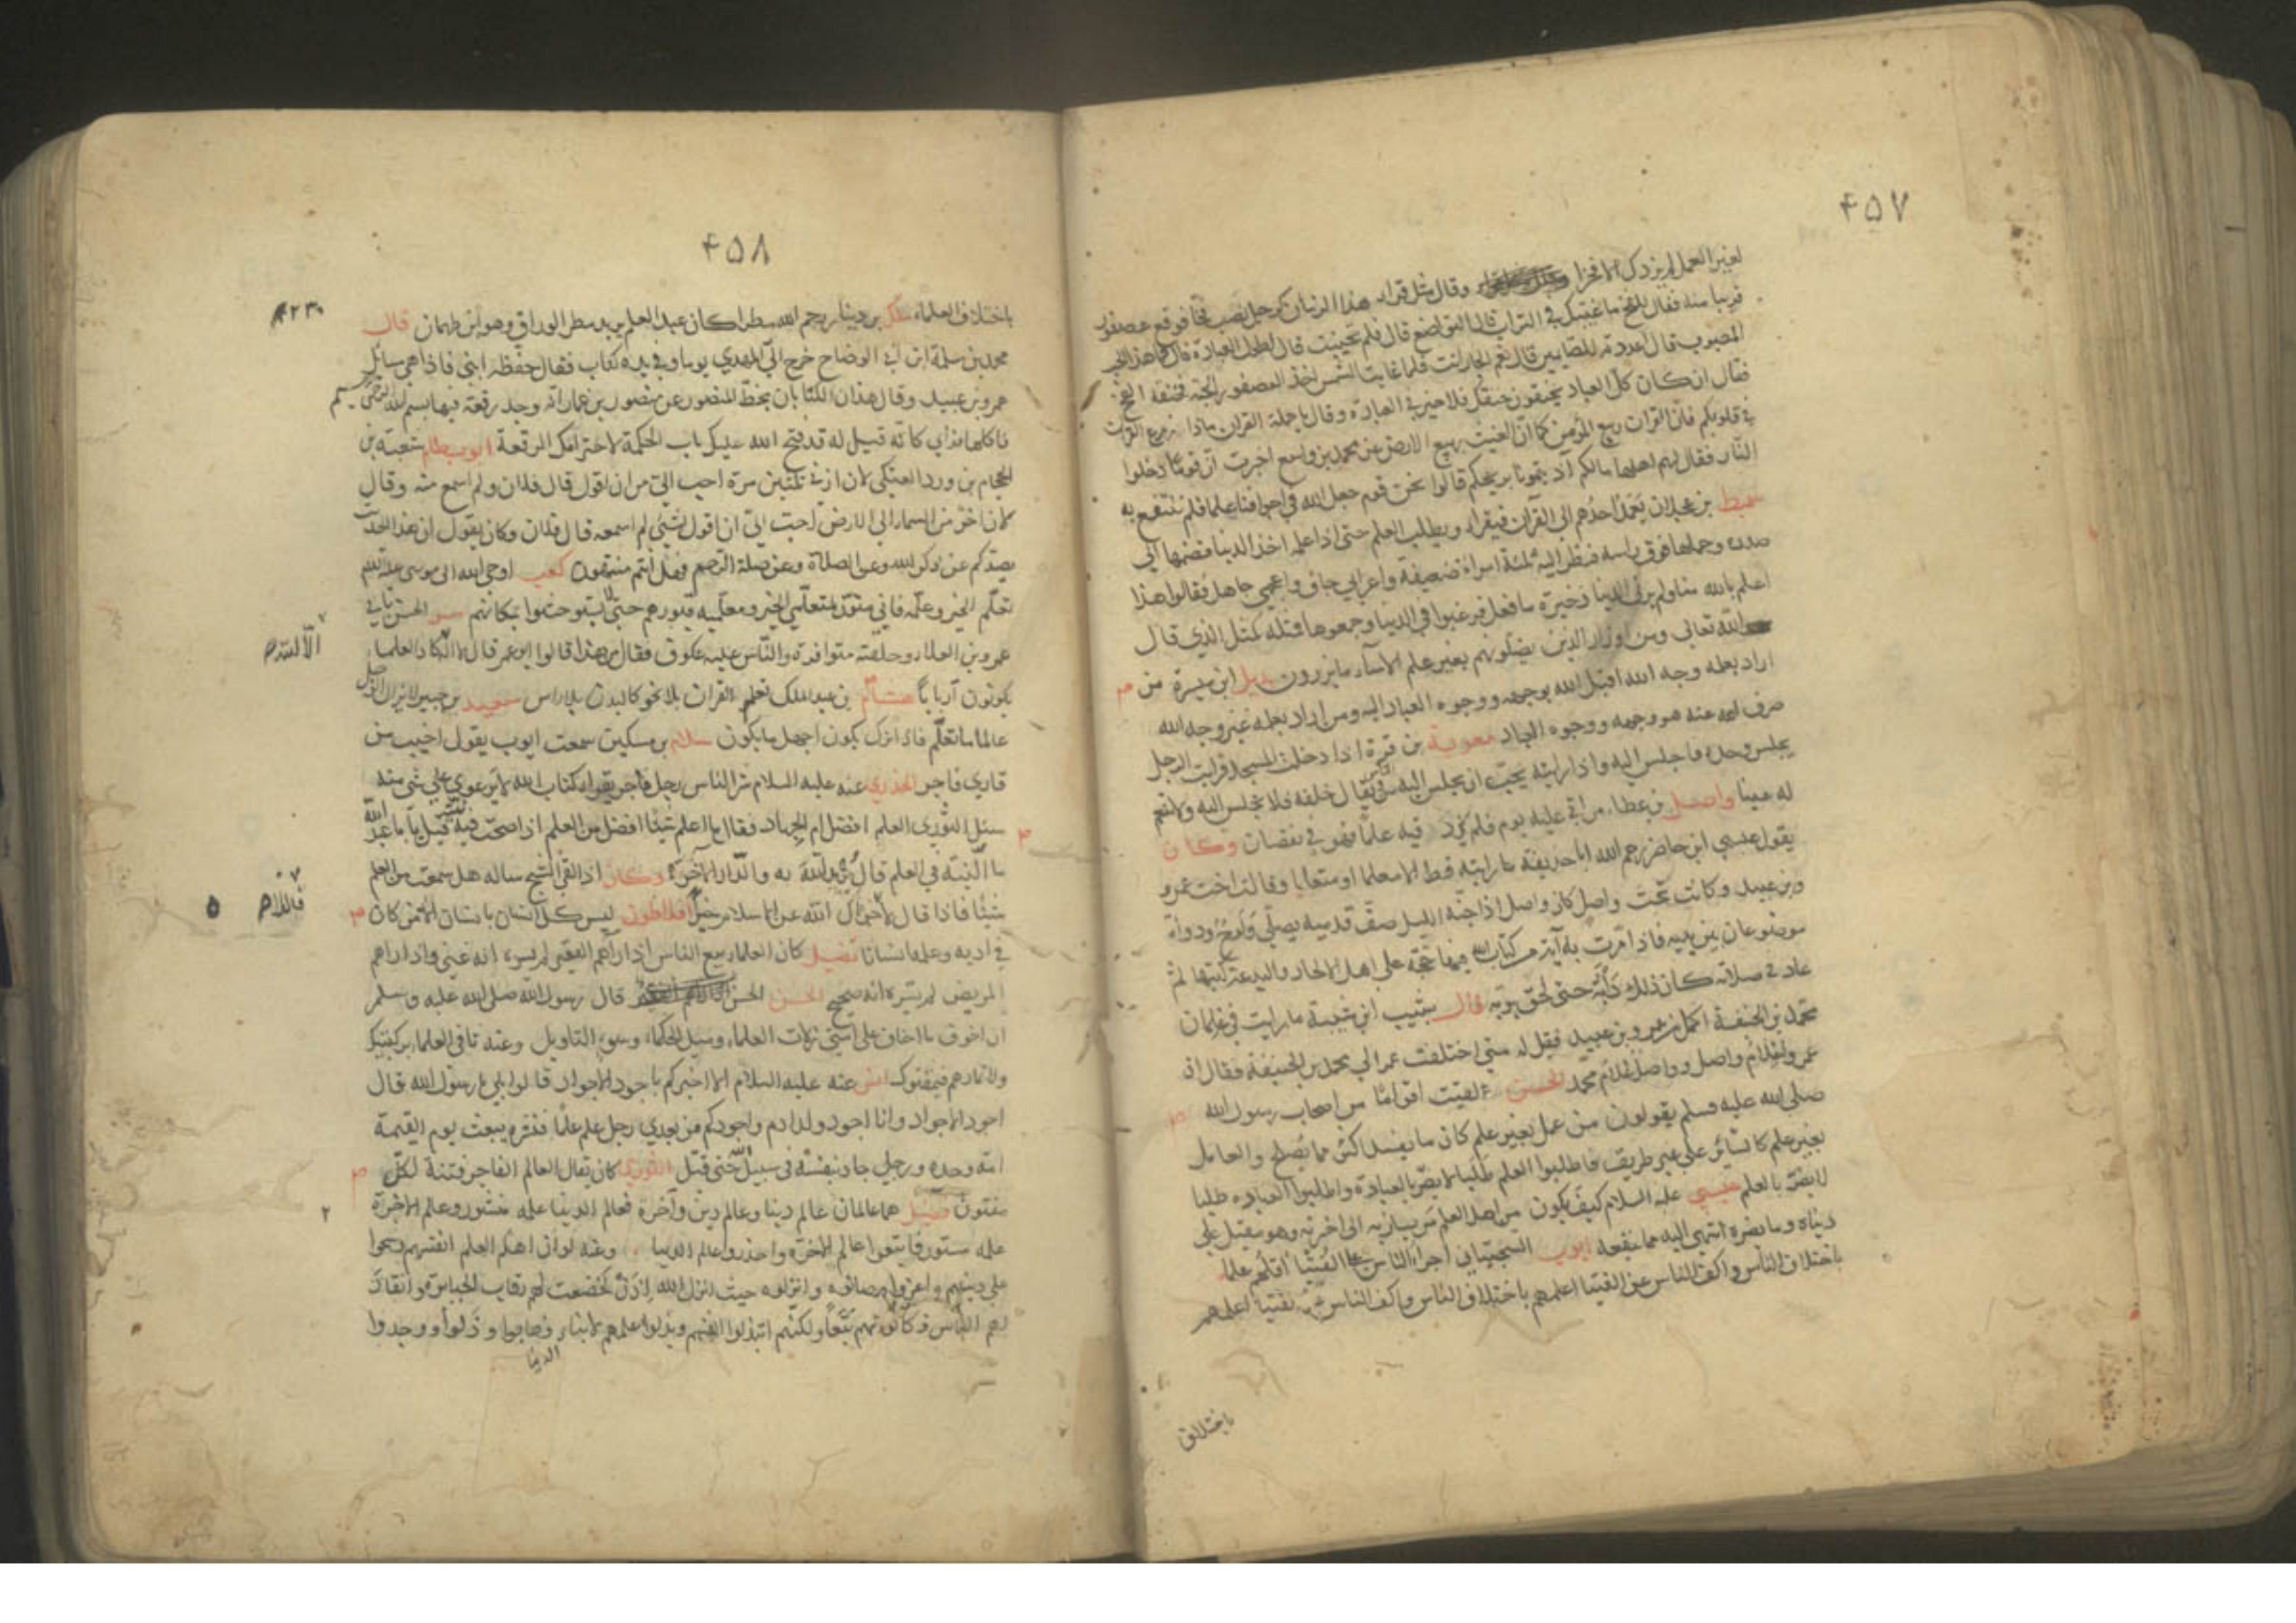 ٤٥٧
لغير العمل لم يزدك الا فخرا وقال مثل قراء هذا الزمان كرجل نصب فخا فوقع عصفور
قريبا منه فقال للفخ ما غيبك في التراب قال التواضع قال فلم انحنيت قال لطول العبادة قال فما هذا الحب
المصبوب قال اعددته للصايمين قال نعم الجار انت فلما غابت الشمس اخذ العصفور الحبة فخنقه الفخ
فقال ان كان كل العباد يخنقون خنقك فلا خير في العبادة وقال يا حملة القران ماذا زرع القران
في قلوبكم فان القران ربيع المؤمن كما ان الغيث ربيع الارض عن محمد بن واسع اخبرت ان قوما دخلوا
النار فقال لهم اهلها مالكم آذيتمونا بريحكم قالوا نحن قوم جعل الله في اجوافنا علما فلم ننتفع به
شميط بن عجلان يعمد احدهم الى القرآن فيقراه ويطلب العلم حتى اذا علمه اخذ الدنيا فضمها الى
صدره وحملها فوق راسه فنظر اليه ثلثة امراة ضعيفة واعرابي جاف واعجمي جاهل فقالوا هذا
اعلم بالله منا ولم ير في الدنيا ذخيرة ما فعل فرغبوا في الدنيا وجمعوها فمثله كمثل الذي قال
الله تعالى ومن اوزار الذين يضلونهم بغير علم الا ساء ما يزرون بديل ابن ميسرة من
اراد بعلمه وجه الله اقبل الله بوجهه ووجوه العباد اليه ومن اراد بعلمه غير وجه الله
صرف الله عنه هو وجهه ووجوه العباد معوية بن قرة اذا دخلت المسجد فرايت الرجل
يجلس وحده فاجلس اليه واذا رايته يحب ان يجلس اليه خلفه فلا تجلس اليه ولا تقم
له عينا واصل بن عطاء من اتى عليه يوم فلم يزدد فيه علما فهو في نقصان وكان
يقول عيسى ابن حاضر رحم الله ابا حذيفة ما رايته قط الا معلما او متعلما وقالت اخت عمرو
بن عبيد وكانت تحت واصل كان واصل اذا جنه الليل صف قدميه يصلي ولوح ودواة
موضوعان بين يديه فاذا مرت به آية من كتاب الله فيها حجة على اهل الالحاد والبدعة كتبها ثم
عاد في صلاته كان ذلك دأبه حتى لحق بربه قال شبيب ابن شيبة ما رايت في غلمان
محمد بن الحنفية اكمل من عمرو بن عبيد فقيل له متى اختلفت عمر الى محمد بن الحنيفة فقال ان
عمر وغلام واصل وواصل غلام محمد الحسن لقيت اقواما من اصحاب رسول الله
صلى الله عليه وسلم يقولون من عمل بغير علم كان ما يفسد اكثر مما يصلح والعامل
بغير علم كالسائر على غير طريق فاطلبوا العلم طلبا لا يضر بالعبادة واطلبوا العبادة طلبا
لا يضر بالعلم عيسى عليه السلام كيف يكون من اهل العلم من يسار به الى اخرته وهو مقبل على
دنياه وما يضره اشهى اليه مما ينفعه ايوب السجستاني اجراء الناس على الفتيا اقلهم علما
باختلاف الناس واكف الناس عن الفتيا اعلمهم باختلاف الناس واكف الناس عن الفتيا اعلمهم
باختلاف
٤٥٨
باختلاف العلماء ملك بن دينار رحم الله مطرا كان عبد العلم يريد مطر الوراق وهو ابن طهمان قال
محمد بن سلمة ابن ابي الوضاح خرج الى المهدي يوما وفي يده كتاب فقال حفظه ابني فاذا هي مسائل
عمرو بن عبيد وقال هذان الكتابان بخط المنصور عن منصور بن عمار انه وجد رقعة فيها بسم الله الرحمن الرحيم
فاكلها فراى كانه قيل له قد فتح الله عليك باب الحكمة لاحترامك الرقعة ابو بسطام شعبة بن
الحجاج بن ورد العتكي لان ازني ثلثين مرة احب الي من ان اقول قال فلان ولم اسمع منه وقال
لان اخر من السماء الى الارض احب الي ان اقول لشيء لم اسمعه قال فلان وكان يقول ان هذا الحديث
يصدكم عن ذكر الله وعن الصلاة وعن صلة الرحم فهل انتم منتهون كعب اوحى الله الى موسى عليه السلم
تعلم الخير وعلمه فاني منور لمتعلمي الخير ومعلميه قبورهم حتى لا يستوحشوا بمكانهم مر الحسن بابي
عمرو بن العلاء وحلقته متوافرة والناس عليه عكوف فقال من هذا قالوا ابو عمر قال الا كاد العلماء
يكونون اربابا هشام بن عبد الملك تعلم القران بلا نحو كالبدن بلا راس سعيد بن جبير لا يزال الرجل
عالما ما تعلم فاذا ترك يكون اجهل ما يكون سلام بن مسكين سمعت ايوب يقول اخبث من
قاري فاجر الخدري عنه عليه السلام شر الناس رجل فاجر يقرا كتاب الله لا يرعوي على شي منه
سئل الثوري العلم افضل ام الجهاد فقال ما اعلم شيئا افضل من العلم اذا صحت فيه النية قيل يا با عبد الله
ما النية في العلم قال يريد الله به والدار الآخرة وكان اذا لقي الشيخ ساله هل سمعت من العلم
شيئا فاذا قال لا قال لا جزاك الله عن الاسلام خيرا افلاطون ليس كل انسان بانسان الا من كان
في ادبه وعلمه انسانا فضيل كان العلماء ربيع الناس اذا راهم الفقير لم يسره انه غني واذا راهم
المريض لم يسره انه صحيح الحسن قال رسول الله صلى الله عليه وسلم
ان اخوف ما اخاف على امتي زلات العلماء وميل الحكماء وسوء التاويل وعنه
ولا تمارهم فيمقتوك انس عنه عليه السلام الا اخبركم باجود الاجواد قالوا بلى يا رسول الله قال
اجود الاجواد وانا اجود ولد ادم واجودكم من بعدي رجل علم علما فنشره يبعث يوم القيمة
امة وحده ورجل جاد بنفسه في سبيل الله حتى قتل الثوري كان يقال العالم الفاجر فتنة لكل
مفتون فضيل هما عالمان عالم دينا وعالم دين وآخرة فعالم الدينا علمه منشور وعالم الاخرة
علمه مستور فاتبعوا عالم الاخرة واحذروا عالم الدنيا وعنه لو ان اهل العلم انفسهم وشحوا
على دينهم واعزوا وصانوه وانزلوه حيث انزل الله اذن لخضعت لهم رقاب الجبابرة وانقاد
لهم الناس وكانوا لهم تبعا ولكنهم ابتذلوا انفسهم وبذلوا علمهم لابناء الدنيا فهانوا وذلوا ووجدوا